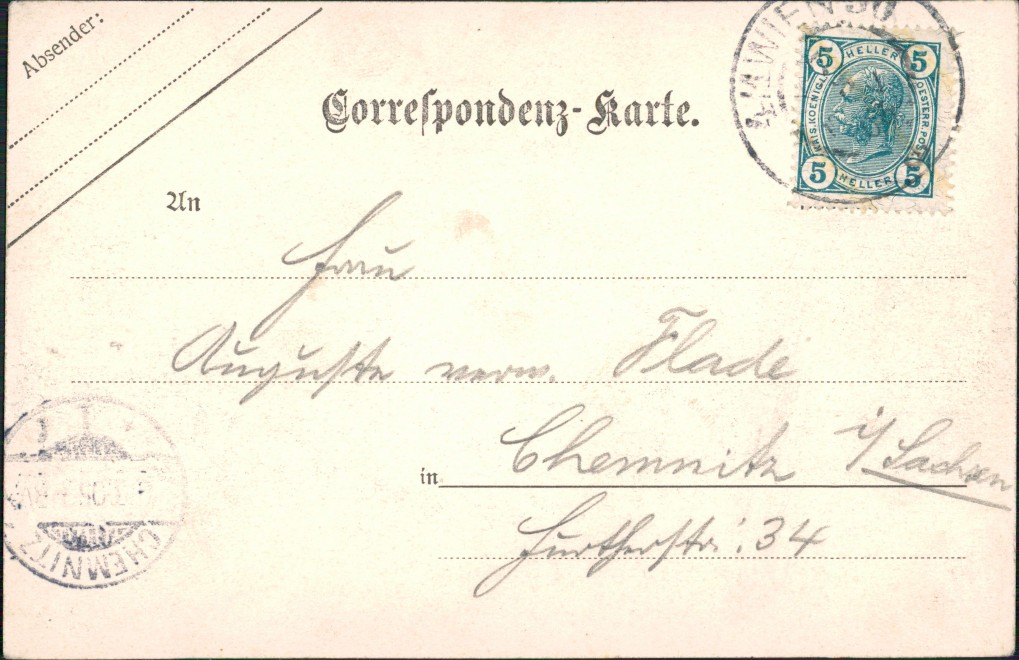 Absender:
WIEN 50
5 HELLER 5
KAIS. KOENIGL. OESTERR. POST
5 HELLER 5
Correspondenz-Karte.
An
Frau
Auguste verw. Flade
Chemnitz i/Sachsen
in
Furtherstr: 34
CHEMNITZ